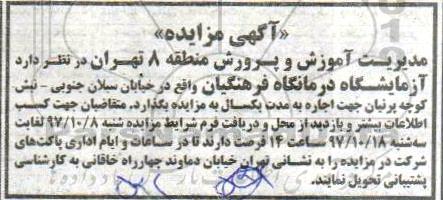 «آگهی مزایده»
مدیریت آموزش و پرورش منطقه ۸ تهران در نظر دارد
آزمایشگاه درمانگاه فرهنگیان واقع در خیابان سبلان جنوبی - نبش
کوچه پرنیان جهت اجاره به مدت یکسال به مزایده بگذارد. متقاضیان جهت کسب
اطلاعات بیشتر و بازدید از محل و دریافت فرم شرایط مزایده شنبه ۹۷/۱۰/۸ لغایت
سه‌شنبه ۹۷/۱۰/۱۸ ساعت ۱۴ فرصت دارند تا در ساعات و ایام اداری پاکت‌های
شرکت در مزایده را به نشانی تهران خیابان دماوند چهارراه خاقانی به کارشناسی
پشتیبانی تحویل نمایند.